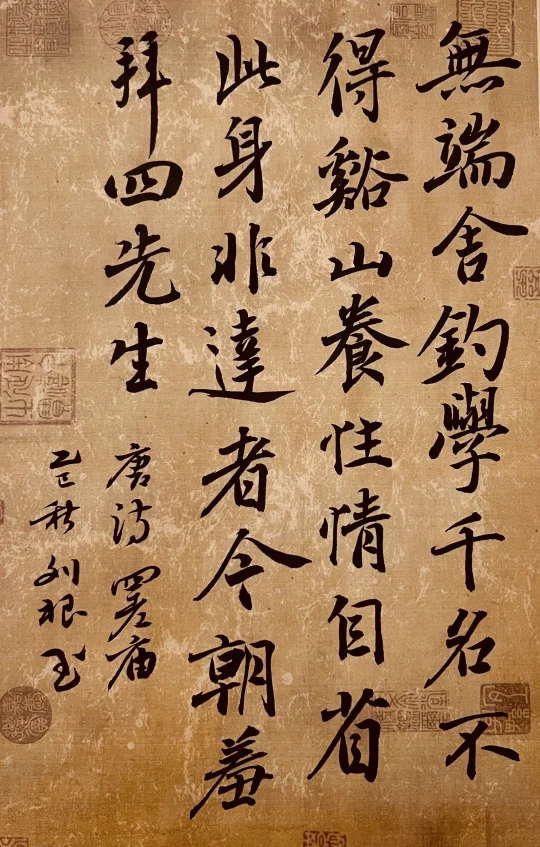 無端舍釣學千名不
得谿山養性情自省
此身非達者今朝羞
拜四先生
唐诗 四老庙
乙巳秋 刘根玉